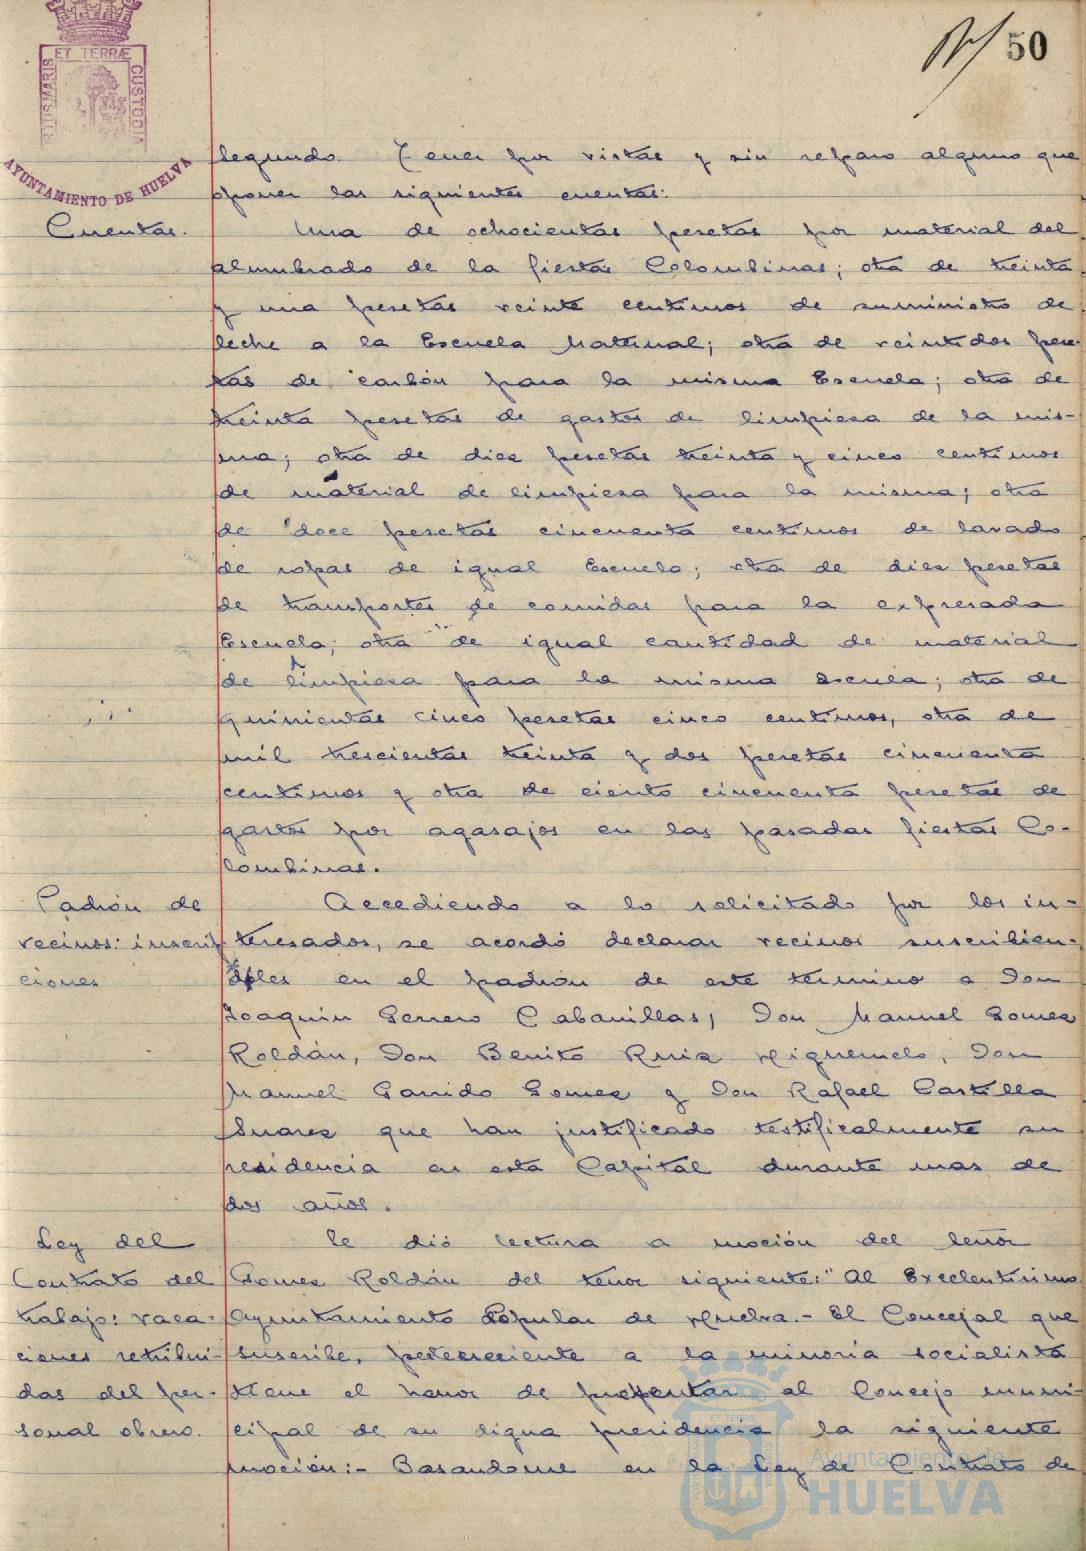 50
ET TERRÆ
CUSTODIA
AYUNTAMIENTO DE HUELVA
Segundo. Tener por vistas y sin reparo alguno que
oponer las siguientes cuentas:
Cuentas.
Una de ochocientas pesetas por material del
alumbrado de la fiestas Colombinas; otra de treinta
y una pesetas veinte centimos de suministro de
leche a la Escuela Maternal; otra de veintidos pese-
tas de carbón para la misma Escuela; otra de
treinta pesetas de gastos de limpiesa de la mis-
ma; otra de diez pesetas treinta y cinco centimos
de material de limpiesa para la misma; otra
de doce pesetas cincuenta centimos de lavado
de ropas de igual Escuela; otra de diez pesetas
de transportes de comidas para la expresada
Escuela; otra de igual cantidad de material
de limpiesa para la misma escuela; otra de
quinientas cinco pesetas cinco centimos, otra de
mil trescientas treinta y dos pesetas cincuenta
centimos y otra de ciento cincuenta pesetas de
gastos por agasajos en las pasadas fiestas Co-
lombinas.
Padrón de
vecinos: inscrip-
ciones
Accediendo a lo solicitado por los in-
teresados, se acordó declarar vecinos suscribien-
doles en el padrón de este termino a Don
Joaquin Perrero Cabanillas, Don Manuel Gomez
Roldán, Don Benito Ruiz Higueruelo, Don
Manuel Garrido Gomez y Don Rafael Castilla
Suarez que han justificado testificalmente su
residencia en esta Capital durante mas de
dos años.
Ley del
Contrato del
trabajo: vaca-
ciones retribui-
das del per-
sonal obrero.
Se dió lectura a moción del Señor
Gomez Roldán del tenor siguiente:" Al Excelentisimo
Ayuntamiento Popular de Huelva.- El Concejal que
suscribe, perteneciente a la minoria socialista
tiene el honor de presentar al Concejo muni-
cipal de su digna presidencia la siguiente
moción:- Basandome en la Ley de Contrato de
Ayuntamiento de
HUELVA